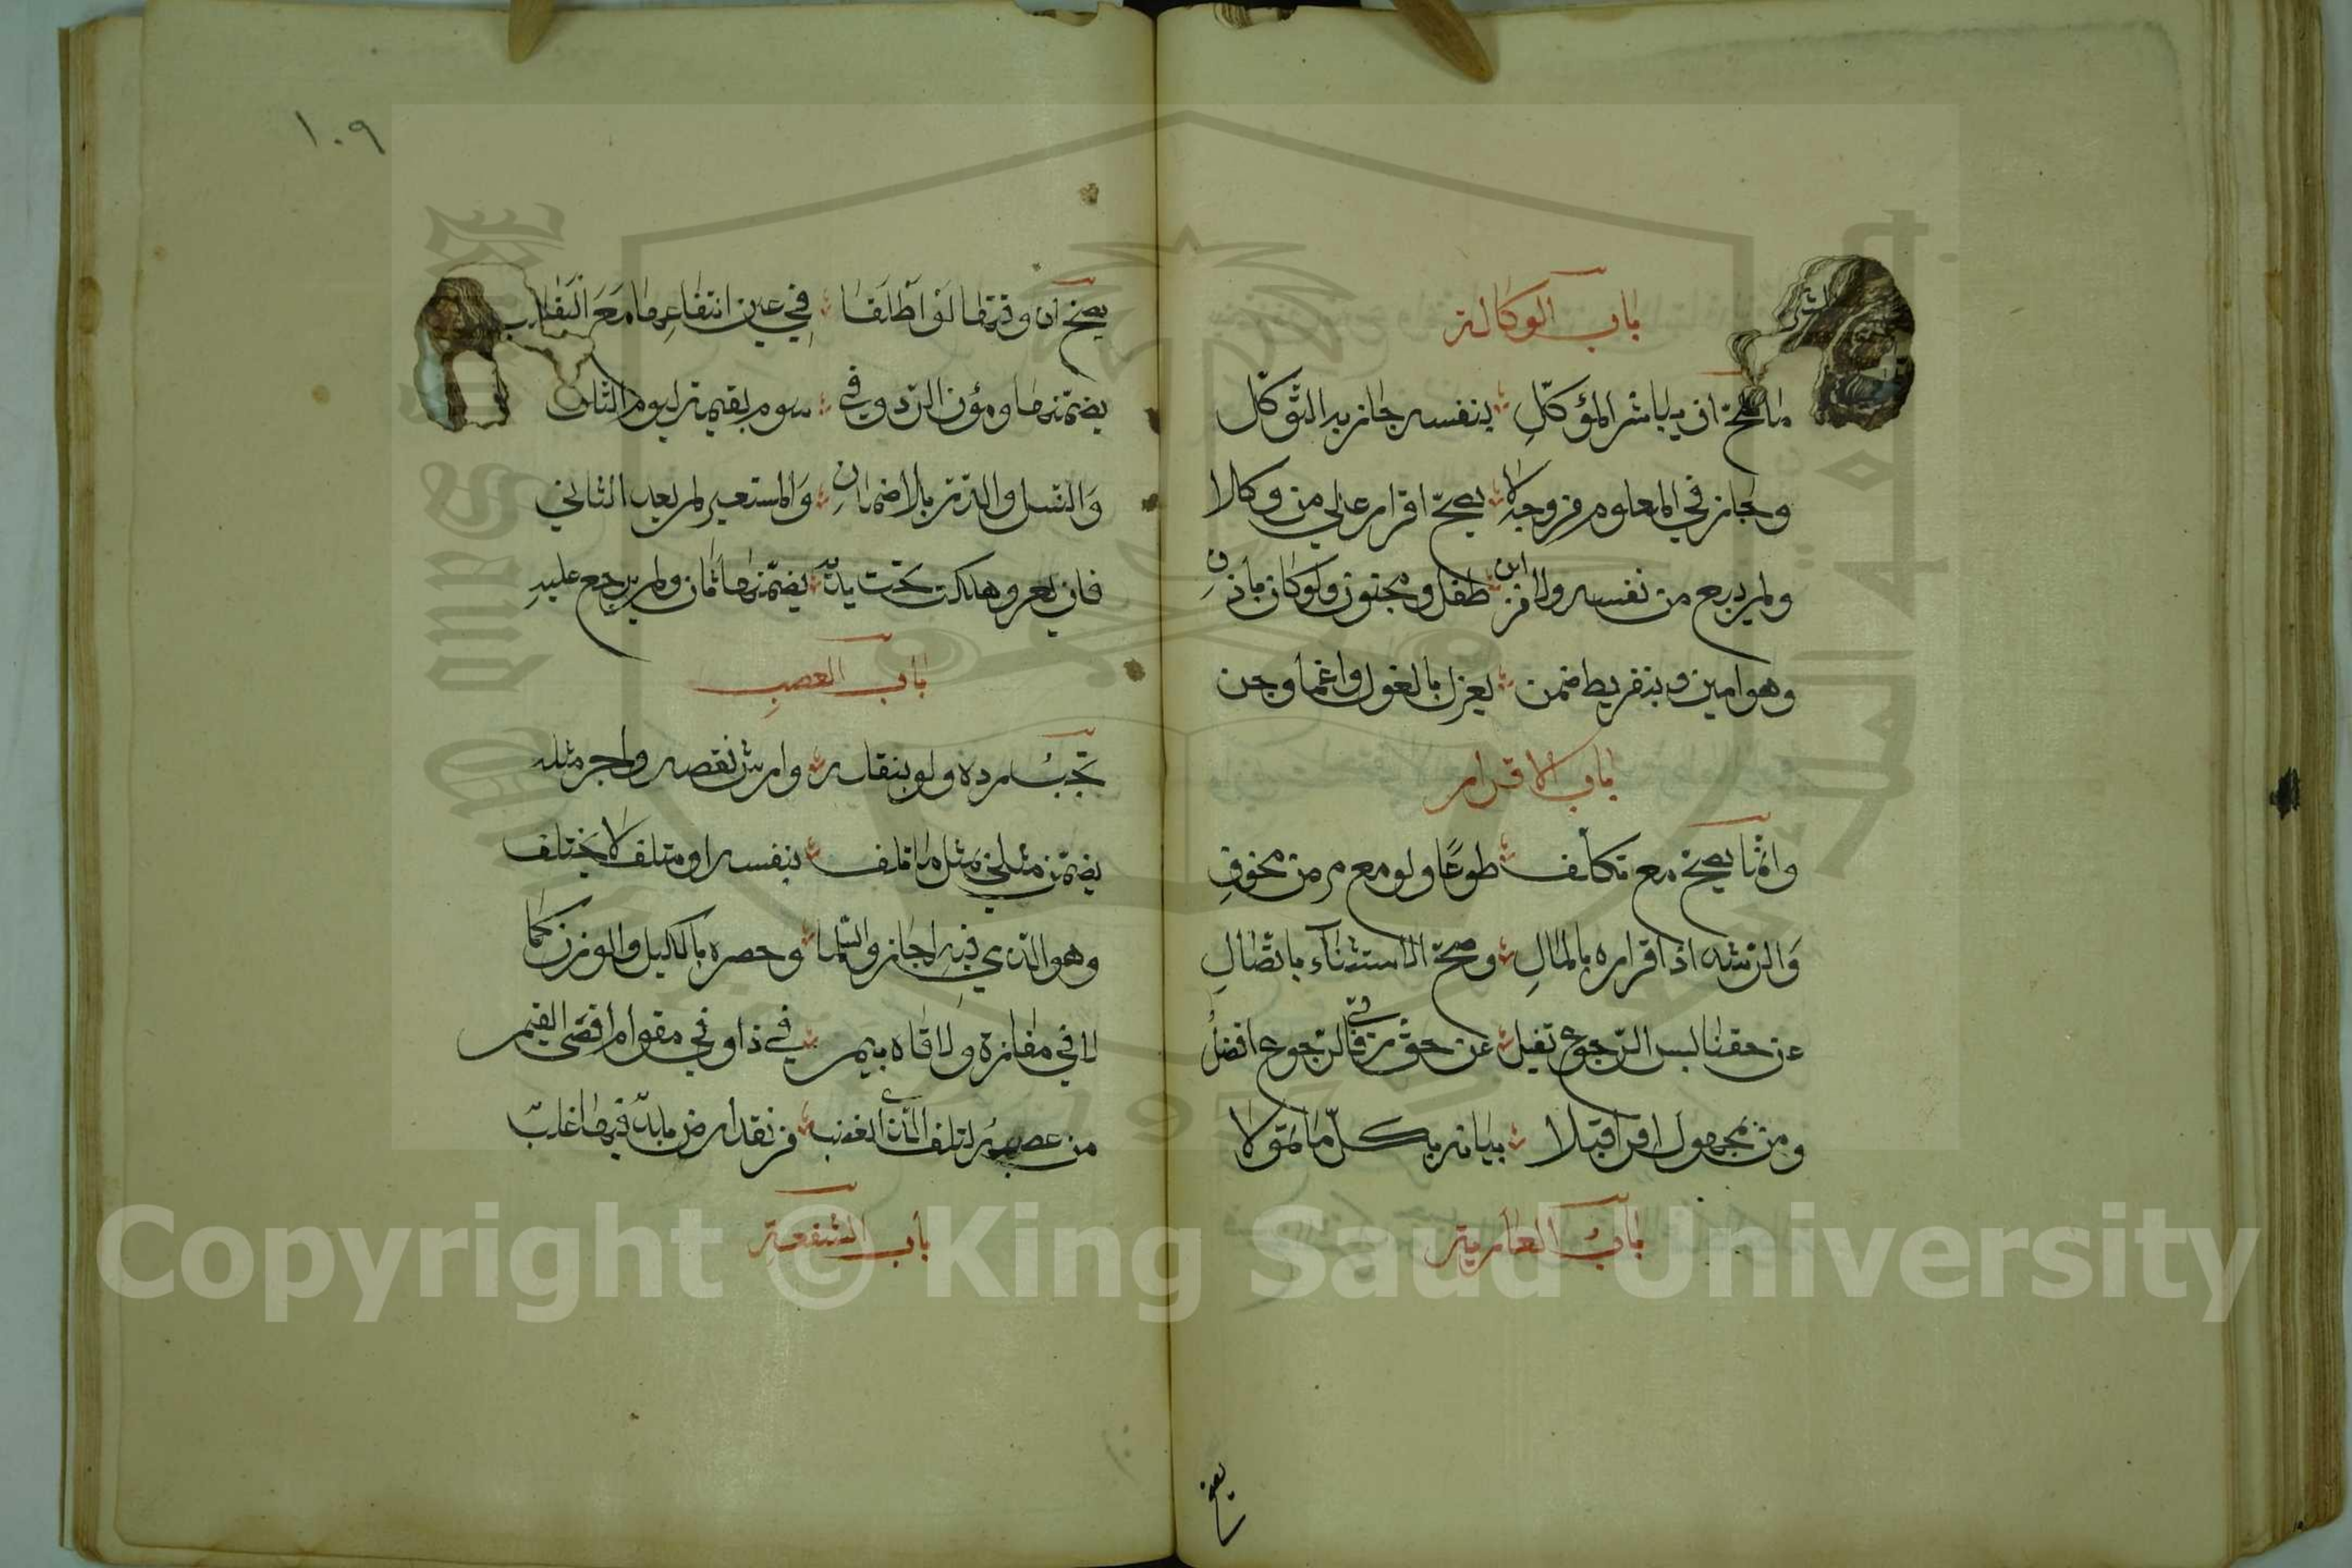 باب الوكالة
ما صح ان يباشر الموكل بنفسه جاز به التوكل
وجاز في المعلوم من وجه ولا يصح اقرار على من وكلا
ولم يبع من نفسه ولا من ابن طفل ومجنون ولو كان باذن
وهو امين وبتفريط ضمن يعزل بالعزل واغما وجن
باب الاقرار
وانما يصح مع تكليف طوعا ولو مع مرض مخوف
والرشد اذ اقراره بالمال وصح الاستثناء باتصال
عن حقنا ليس الرجوع تقبل عن حق ربي فالرجوع افضل
ومن بمجهول اقر اقبلا بيانه بكل ما تمولا
باب العارية
يصح
١٠٩
يصح ان وقتها او اطلقا في عين انتفاعها مع البقا
يضمنها ومؤن الرد وفي سوم بقيمة ليوم التلف
والنسل والدر بلا ضمان والمستعير لم يعد الثاني
فان يعر وهلكت تحت يديه يضمنها ثان ولم يرجع عليه
باب الغصب
تجب رده ولو بنقله وارش نقصه واجر مثله
يضمن مثلي بمثل ما تلف بنفسه او متلف لا يختلف
وهو الذي فيه اجازوا السلما وحصره بالكيل والوزن كما
لا في مفازة ولاقاه بيم في ذا وفي مقوم اقصى القيم
من غصبه لتلف الذي الغصب من نقد ارض تلف فيها غلب
باب الشفعة
Copyright © King Saud University